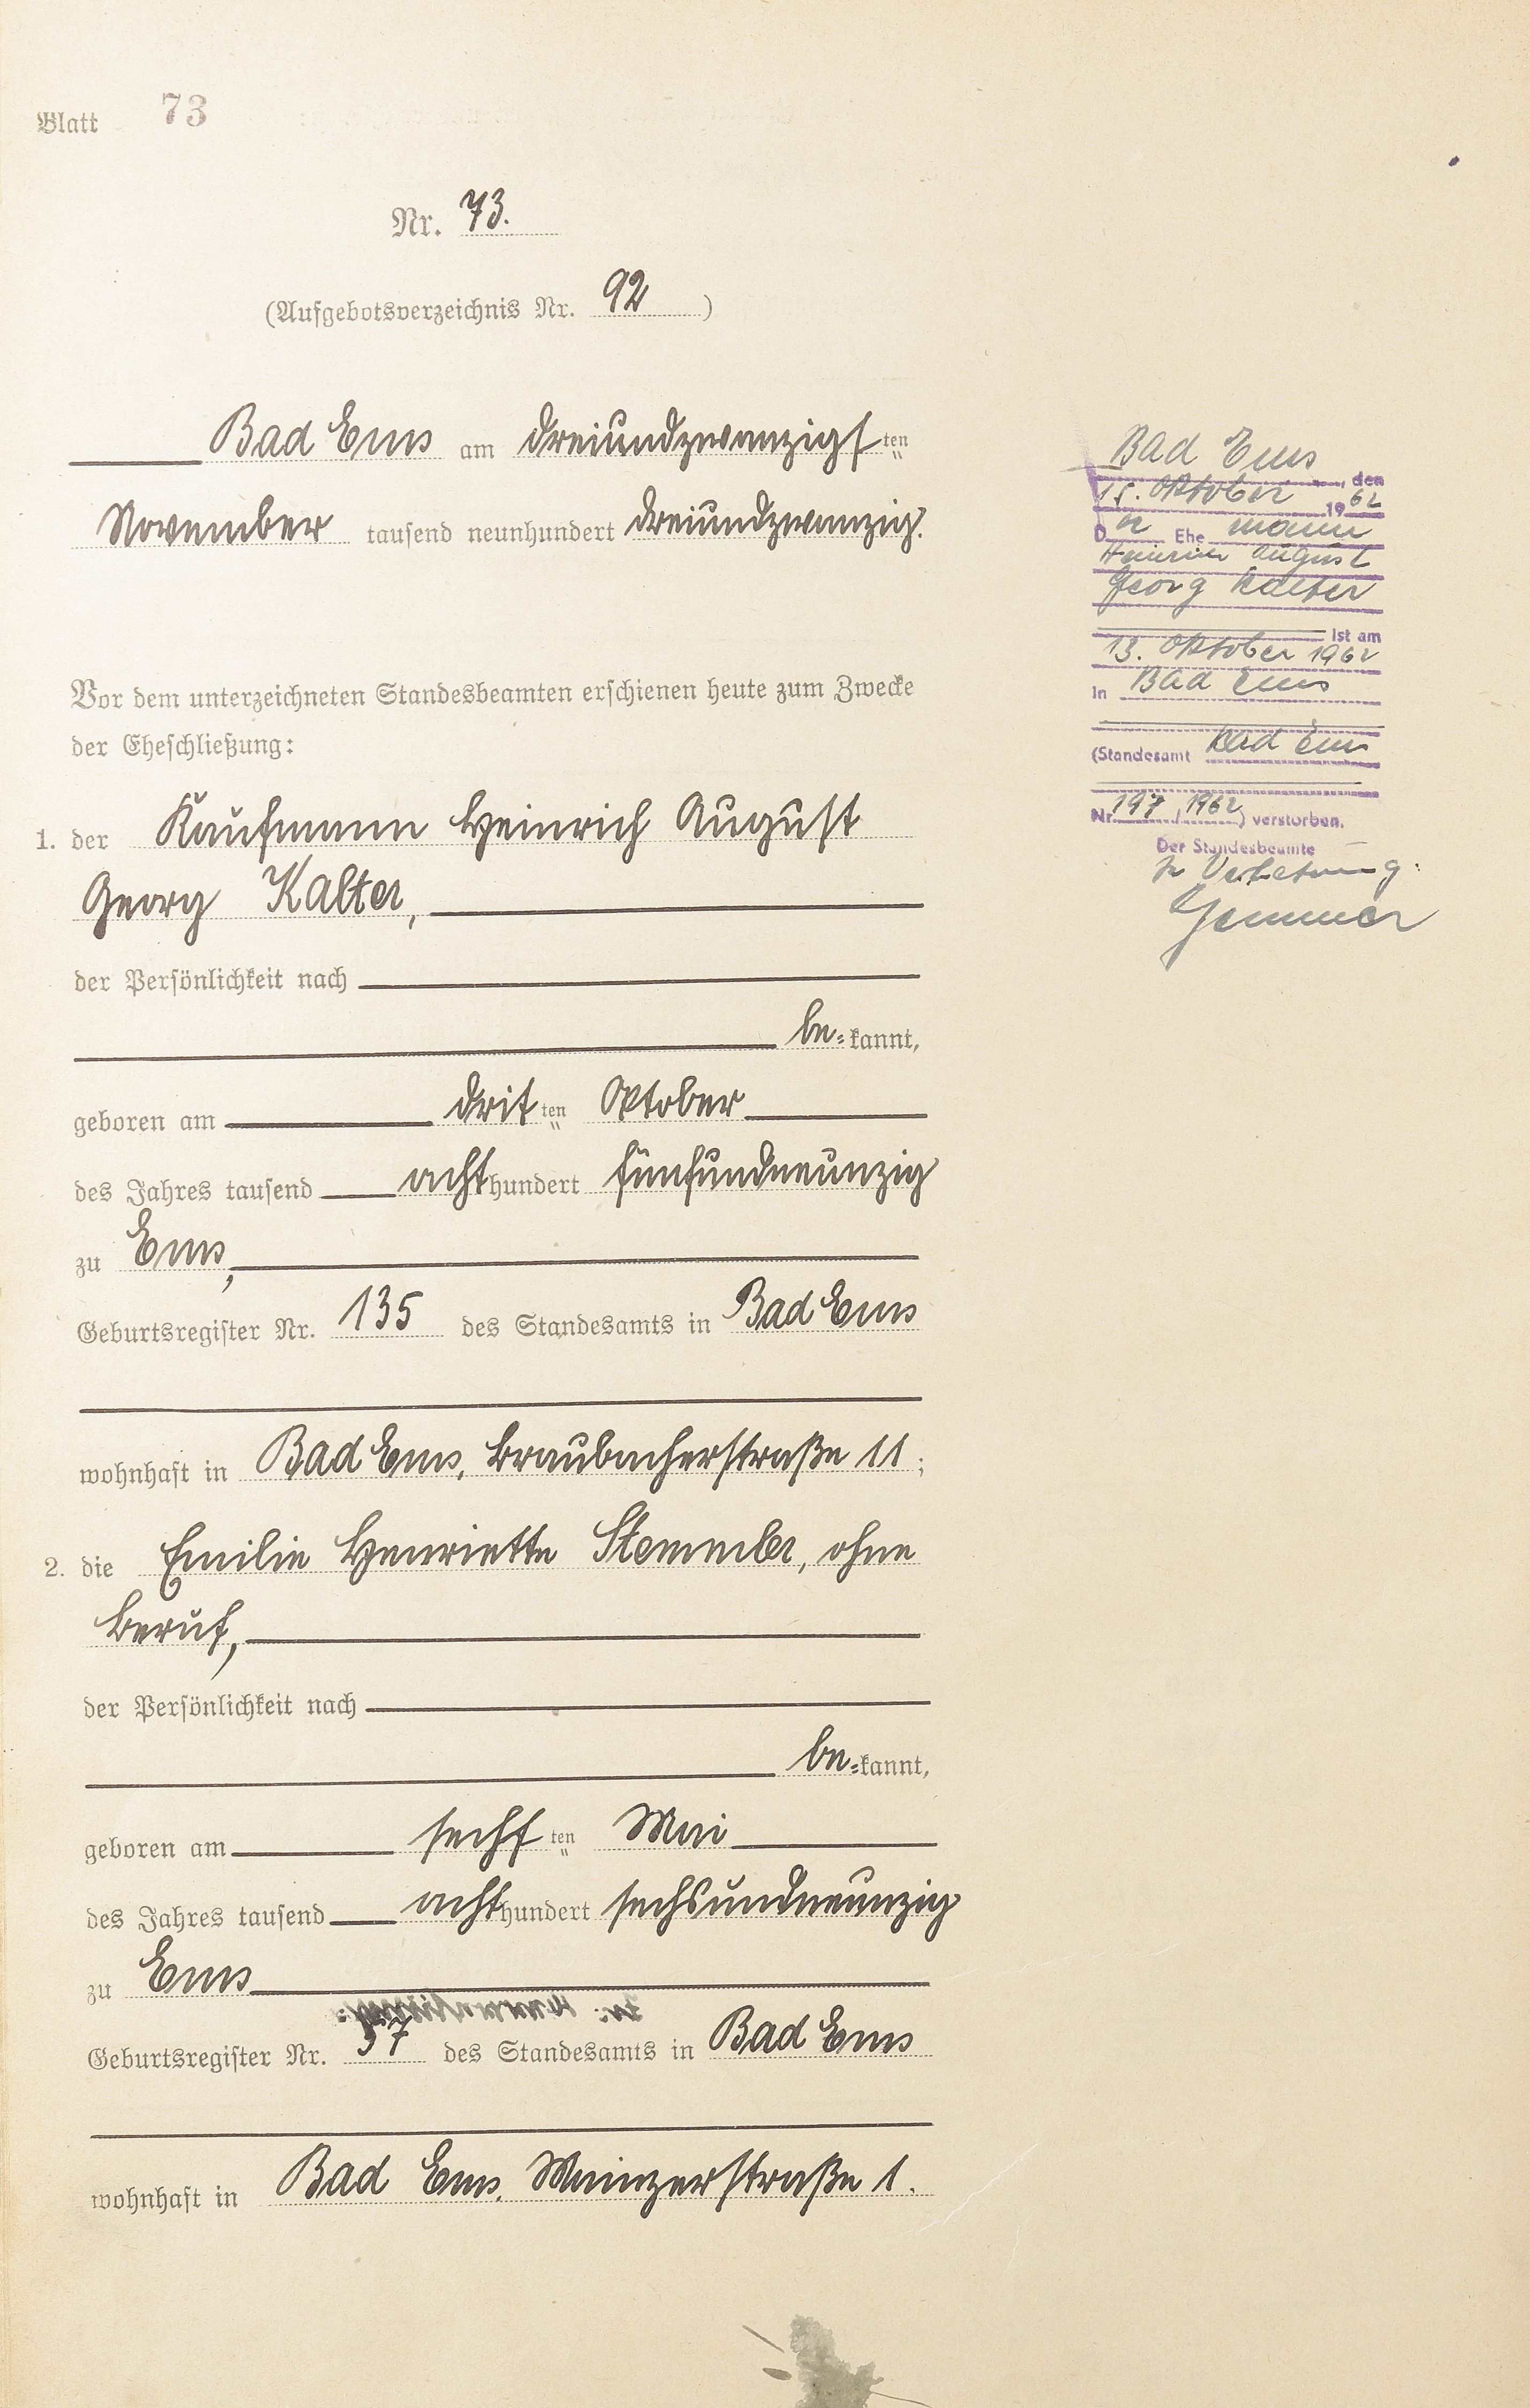 Blatt 73
Nr. 73.
(Aufgebotsverzeichnis Nr. 92)
Bad Ems am dreiundzwanzigsten
November tausend neunhundert dreiundzwanzig.
Vor dem unterzeichneten Standesbeamten erschienen heute zum Zwecke
der Eheschließung:
1. der Kaufmann Heinrich August
Georg Kalter,
der Persönlichkeit nach
be=kannt,
geboren am dritten Oktober
des Jahres tausend achthundert fünfundneunzig
zu Ems,
Geburtsregister Nr. 135 des Standesamts in Bad Ems
wohnhaft in Bad Ems, Braubacherstraße 11;
2. die Emilie Henriette Stemmler, ohne
Beruf,
der Persönlichkeit nach
be=kannt,
geboren am sechsten Mai
des Jahres tausend achthundert sechsundneunzig
zu Ems
Geburtsregister Nr. 57 des Standesamts in Bad Ems
wohnhaft in Bad Ems, Mainzerstraße 1.
Bad Ems, den
15. Oktober 1962
Der Ehemann
Heinrich August
Georg Kalter
ist am
13. Oktober 1962
in Bad Ems
(Standesamt Bad Ems
Nr. 197/1962) verstorben.
Der Standesbeamte
In Vertretung:
Gemmer